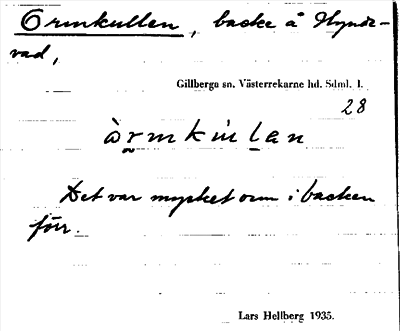 Ormkullen, backe å Hynde-
vad,
Gillberga sn. Västerrekarne hd. Sdml. 1.
28
òrmkùlan
Det var mycket orm i backen
förr.
Lars Hellberg 1935.